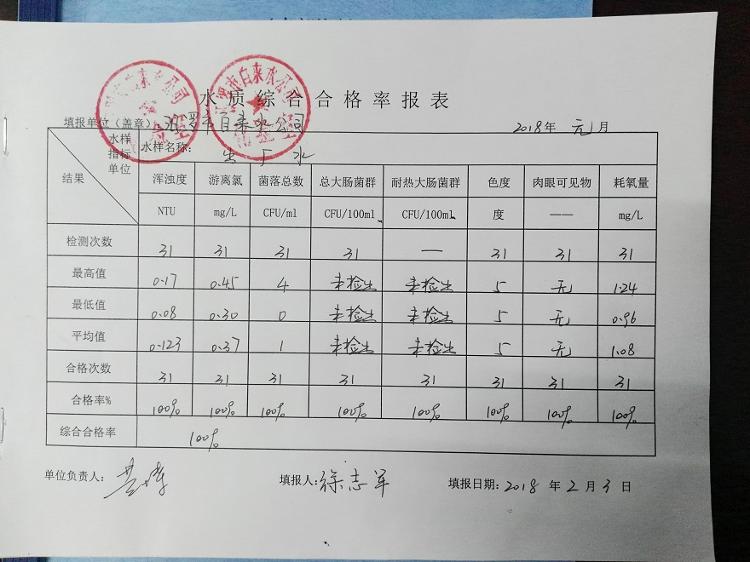 水质综合合格率报表
填报单位（盖章） 市自来水公司 2018年 元 月
水样 指标 单位 结果 水样名称： 出厂水
浑浊度 游离氯 菌落总数 总大肠菌群 耐热大肠菌群 色度 肉眼可见物 耗氧量
NTU mg/L CFU/ml CFU/100ml CFU/100ml 度 —— mg/L
检测次数 31 31 31 31 — 31 31 31
最高值 0.17 0.45 4 未检出 未检出 5 无 1.24
最低值 0.08 0.30 0 未检出 未检出 5 无 0.96
平均值 0.123 0.37 1 未检出 未检出 5 无 1.08
合格次数 31 31 31 31 31 31 31 31
合格率% 100% 100% 100% 100% 100% 100% 100% 100%
综合合格率 100%
单位负责人： 填报人：徐志军 填报日期：2018 年 2 月 3 日